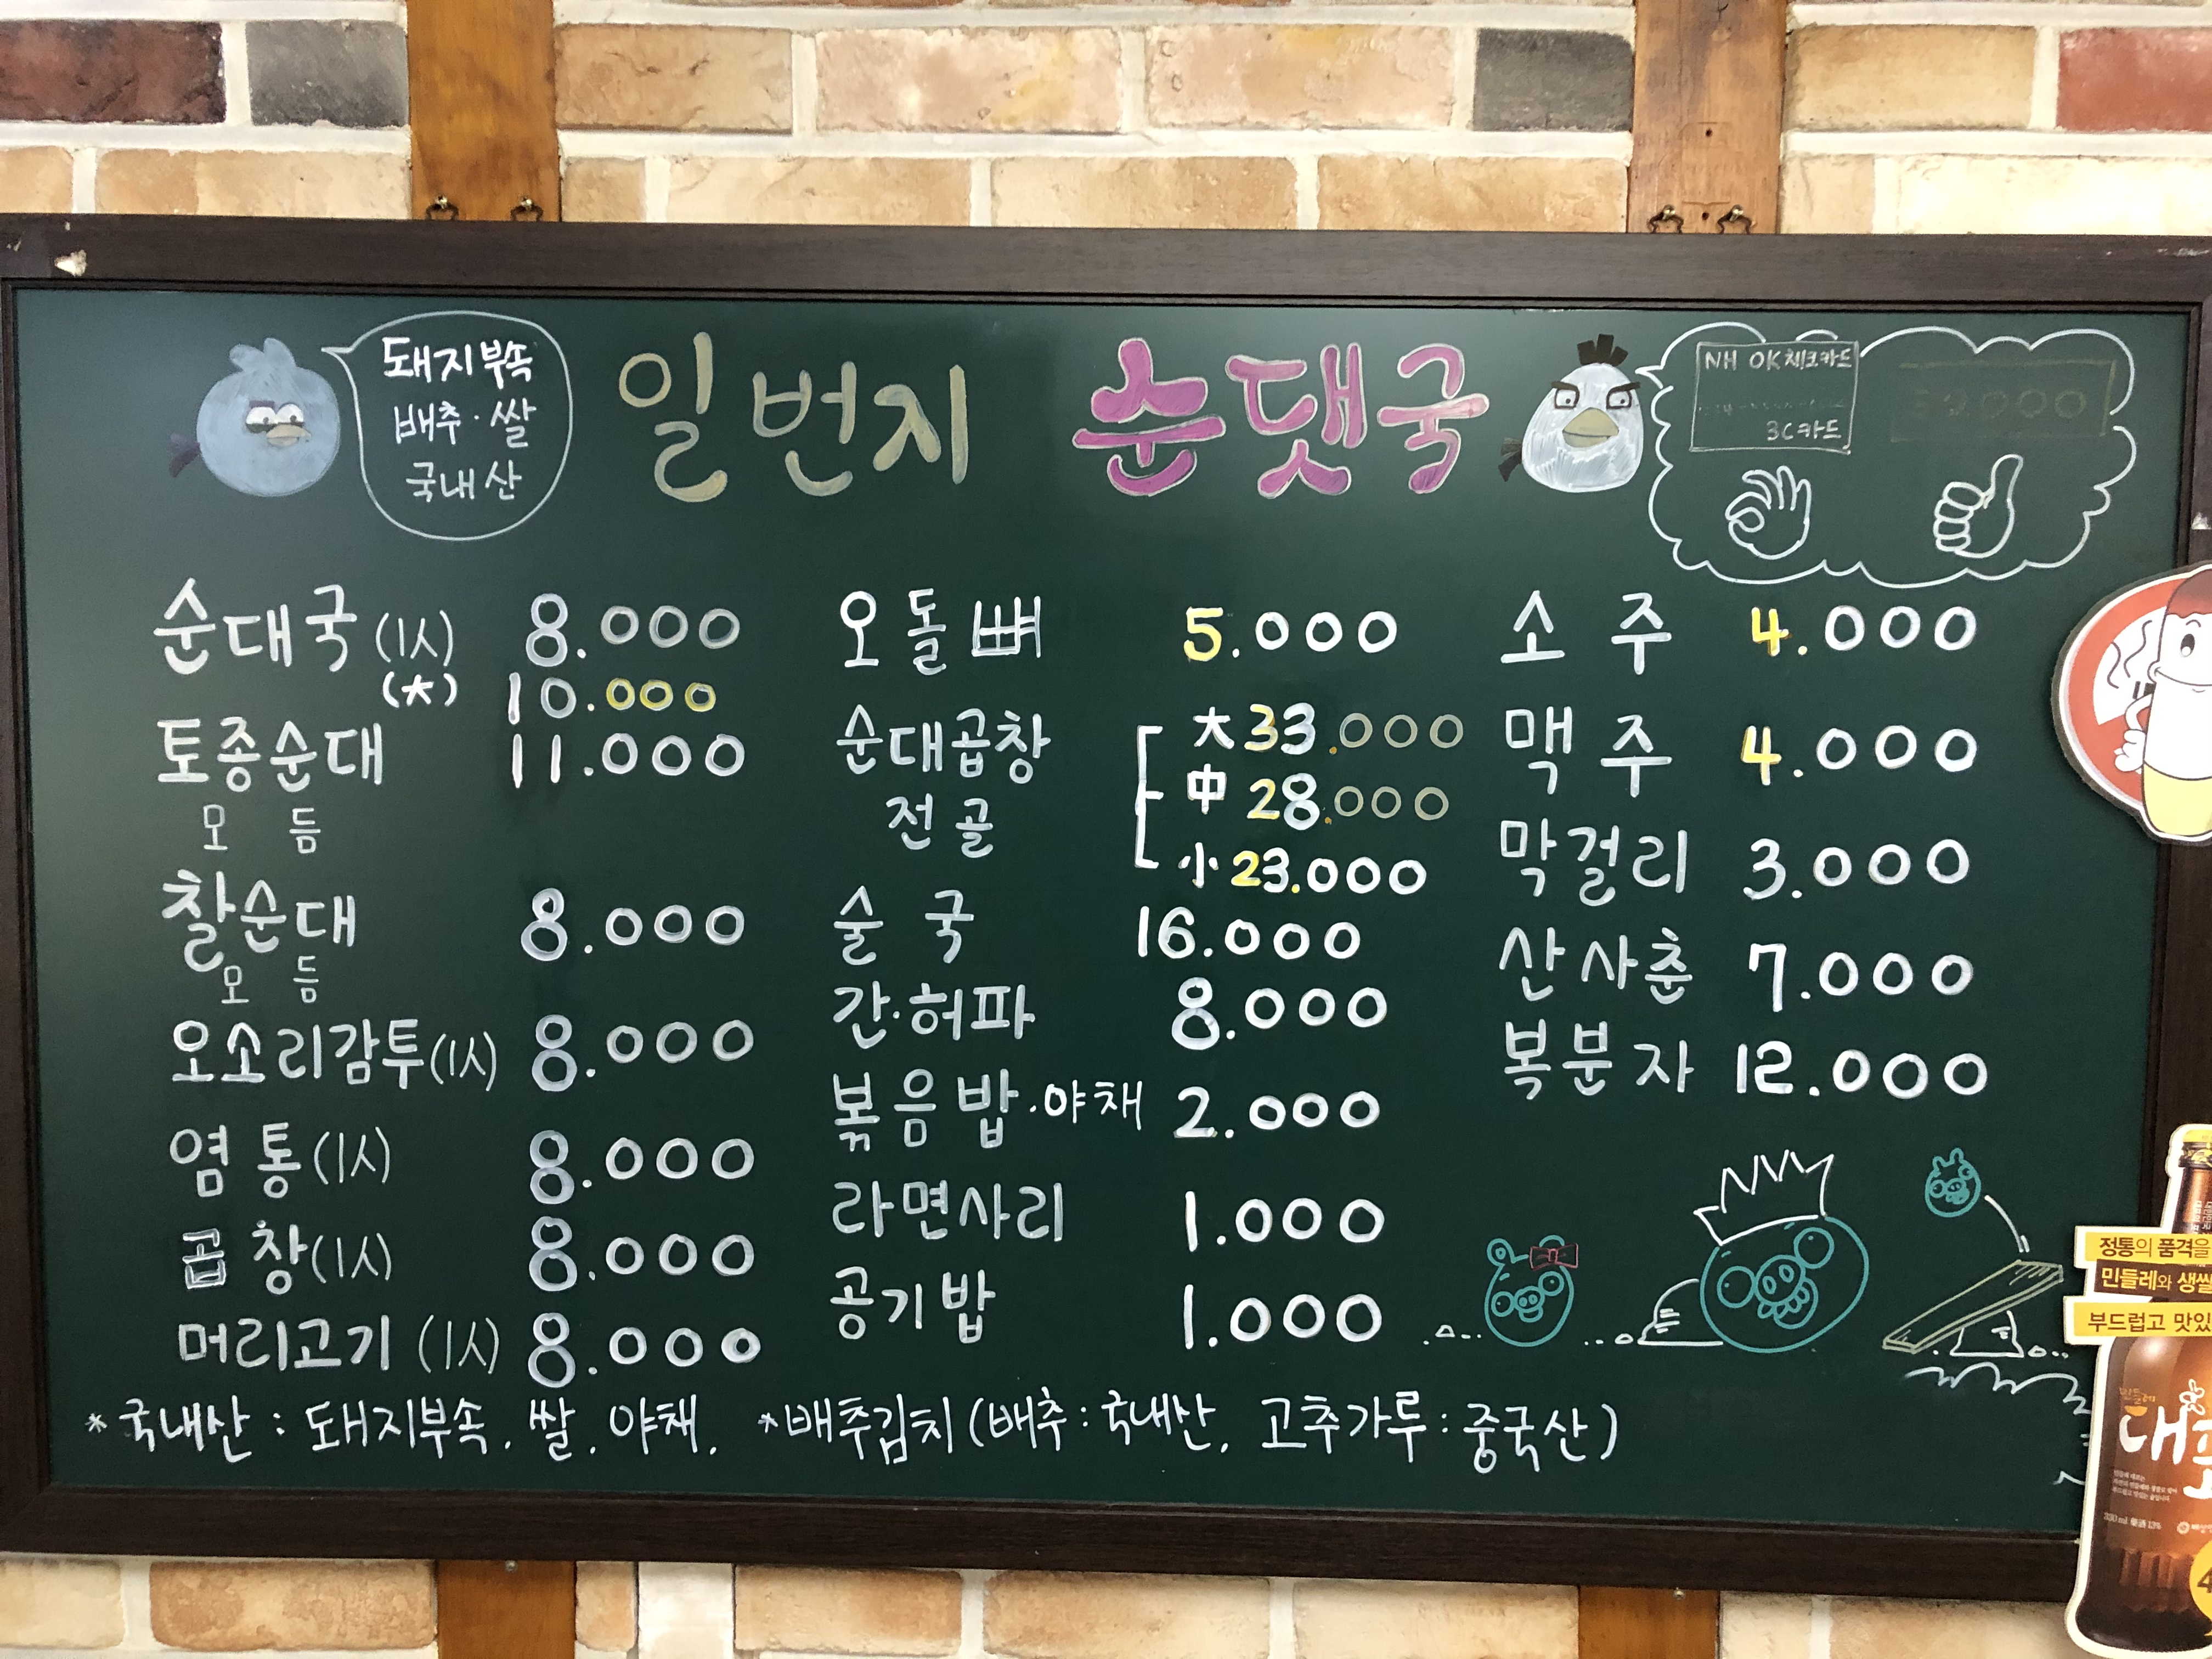 돼지부속
배추·쌀
국내산
일번지 순댓국
NH OK체크카드
3C카드
순대국(1人) 8.000
(大) 10.000
토종순대 11.000
모듬
찰순대 8.000
모듬
오소리감투(1人) 8.000
염통(1人) 8.000
곱창(1人) 8.000
머리고기(1人) 8.000
오돌뼈 5.000
순대곱창 大 33.000
전골 中 28.000
小 23.000
술국 16.000
간·허파 8.000
볶음밥·야채 2.000
라면사리 1.000
공기밥 1.000
소주 4.000
맥주 4.000
막걸리 3.000
산사춘 7.000
복분자 12.000
*국내산 : 돼지부속. 쌀. 야채. *배추김치(배추:국내산, 고추가루:중국산)
정통의 품격을
민들레와 생쌀
부드럽고 맛있
민들레
대포